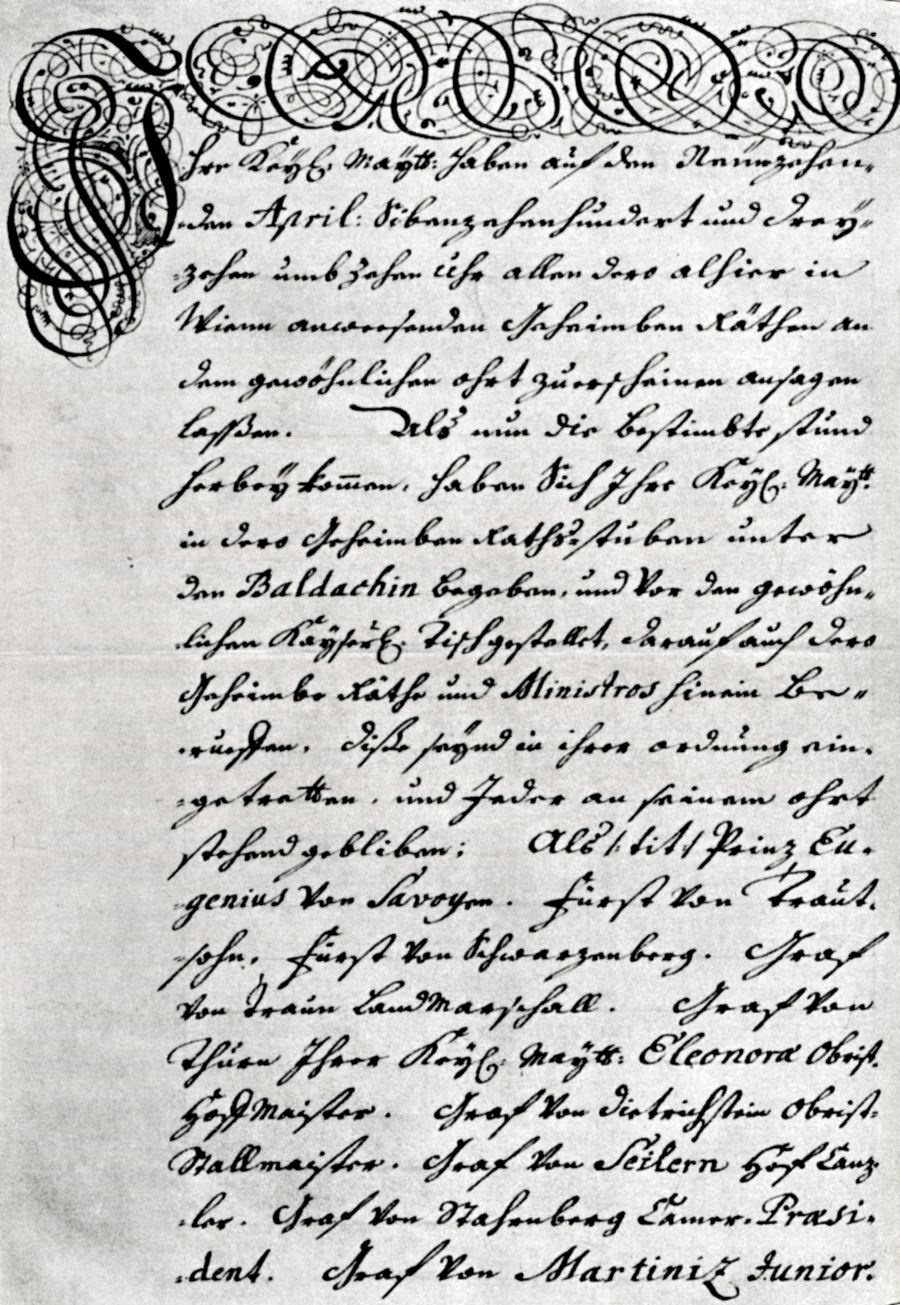 Ihre Keyl: Maytt: haben auf den Neünzehen-
-den April: Sibenzehenhundert und drey-
-zehen umb zehen Uhr allen dero alhier in
Wienn anweesenden Geheimben Räthen an
dem gewöhnlichen ohrt zuerscheinen ansagen
lassen. Als nun die bestimbte stund
herbey kom̄en, haben Sich Ihre Keyl: Maytt:
in dero Geheimben Raths-stuben unter
den Baldachin begeben, und vor den gewöhn-
-lichen Kayserl: Tisch gestellet, darauf auch dero
Geheimbe Räthe und Ministros hinein be-
-rueffen, diße seynd in ihrer ordnung ein-
-getretten, und Jeder an seinem ohrt
stehend gebliben; Als /: tit: / Prinz Eu-
-genius von Savoyen. Fürst von Traut-
-sohn, Fürst von Schwarzenberg. Graf
von Traun LandMarschall. Graf von
Thürn Ihrer Keyl: Maytt: Eleonoræ Obrist-
HoffMaister. Graf von Dietrichstein Obrist-
Stallmaister. Graf von Seilern Hof Canz-
-ler. Graf von Stahrnberg Camer-Præsi-
-dent. Graf von Martiniz Junior.